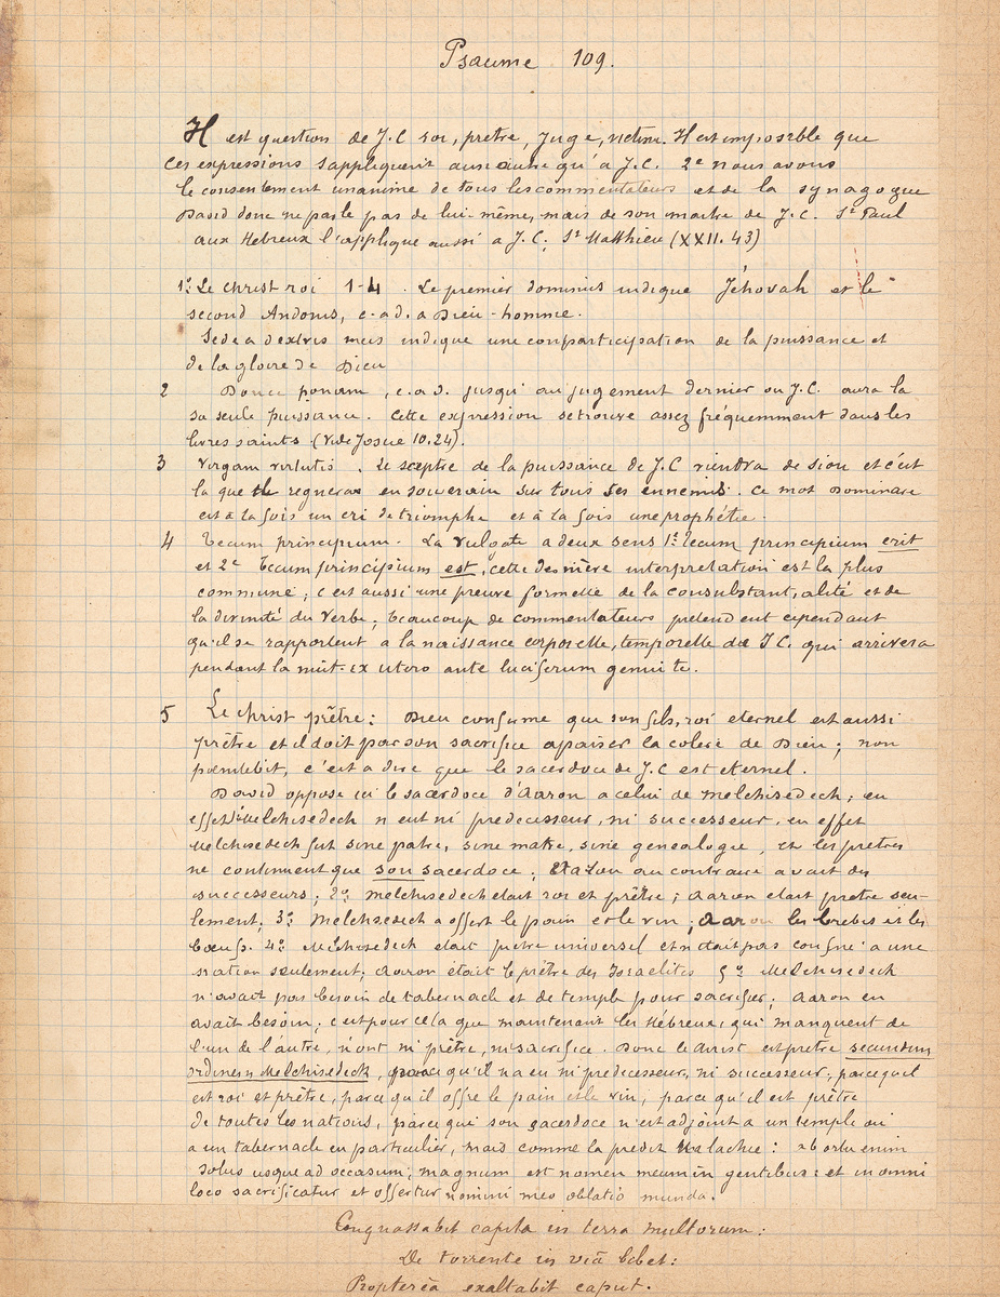 Psaume 109.
Il est question de J.C roi, prêtre, Juge, victime. Il est impossible que
ces expressions s'appliquent à un autre qu'à J.C. 2e nous avons
le consentement unanime de tous les commentateurs et de la synagogue
David donc ne parle pas de lui-même, mais de son maître de J.C. St Paul
aux Hebreux l'applique aussi a J.C; St Matthieu (XXII.43)
1º Le christ roi 1-4. Le premier dominus indique Jéhovah et le
second Andonis, c.a.d. a Dieu-homme.
Sede a dextris meis indique une comparticipation de la puissance et
de la gloire de Dieu
2 Donec ponam, c.a.d. jusqu'au jugement dernier ou J.C. aura la
sa seule puissance. Cette expression se trouve assez fréquemment dans les
livres saints (Vide Josue 10.24).
3 Virgam virtutis. Le sceptre de la puissance de J.C viendra de sion et c'est
la que il regnera en souverain sur tous ses ennemis. Ce mot Dominare
est a la fois un cri de triomphe et à la fois une prophétie.
4 Tecum principium. La vulgate a deux sens 1º Tecum principium erit
et 2e Tecum principium est, cette dernière interpretation est la plus
commune, c'est aussi une preuve formelle de la consubstantialité et de
la divinité du Verbe; beaucoup de commentateurs pretendent cependant
qu'il se rapportent a la naissance corporelle, temporelle de J C. qui arrivera
pendant la nuit. ex utero ante luciferum genui te.
5 Le christ prêtre: Dieu confirme que son fils, roi eternel est aussi
prêtre et il doit par son sacrifice apaiser la colere de Dieu; non
pœnitebit, c'est a dire que le sacerdoce de J.C est eternel.
David oppose ici le sacerdoce d'Aaron a celui de Melchisedech; en
effet 1º Melchisedech n'eut ni predecesseur, ni successeur, en effet
Melchisedech fut sine patre, sine matre, sine genealogie, et les pretres
ne continuent que son sacerdoce; Aaron au contraire avait des
successeurs; 2º Melchisedech etait roi et prêtre; Aaron etait pretre seu-
lement; 3º Melchisedech a offert le pain et le vin; Aaron les brebis et les
bœufs. 4º Melchisedech etait pretre universel et n'etait pas confiné a une
nation seulement; Aaron était le prêtre des Israelites 5º Melchisedech
n'avait pas besoin de tabernacle et de temple pour sacrifier; Aaron en
avait besoin; c'est pour cela que maintenant les Hébreux, qui manquent de
l'un de l'autre, n'ont ni prêtre, ni sacrifice. Donc le christ est pretre secundum
ordinem Melchisedech, parce qu'il n'a eu ni predecesseur, ni successeur, parce qu'il
est roi et prêtre, parce qu'il offre le pain et le vin, parce qu'il est prêtre
de toutes les nations, parce que son sacerdoce n'est adjoint a un temple ou
a un tabernacle en particulier, mais comme la predit Malachie: ab ortu enim
solis usque ad occasum, magnum est nomen meum in gentibus: et in omni
loco sacrificatur et offertur nomini meo oblatio munda.
Conquassabit capita in terra multorum:
De torrente in viâ bibet:
Proptereà exaltabit caput.